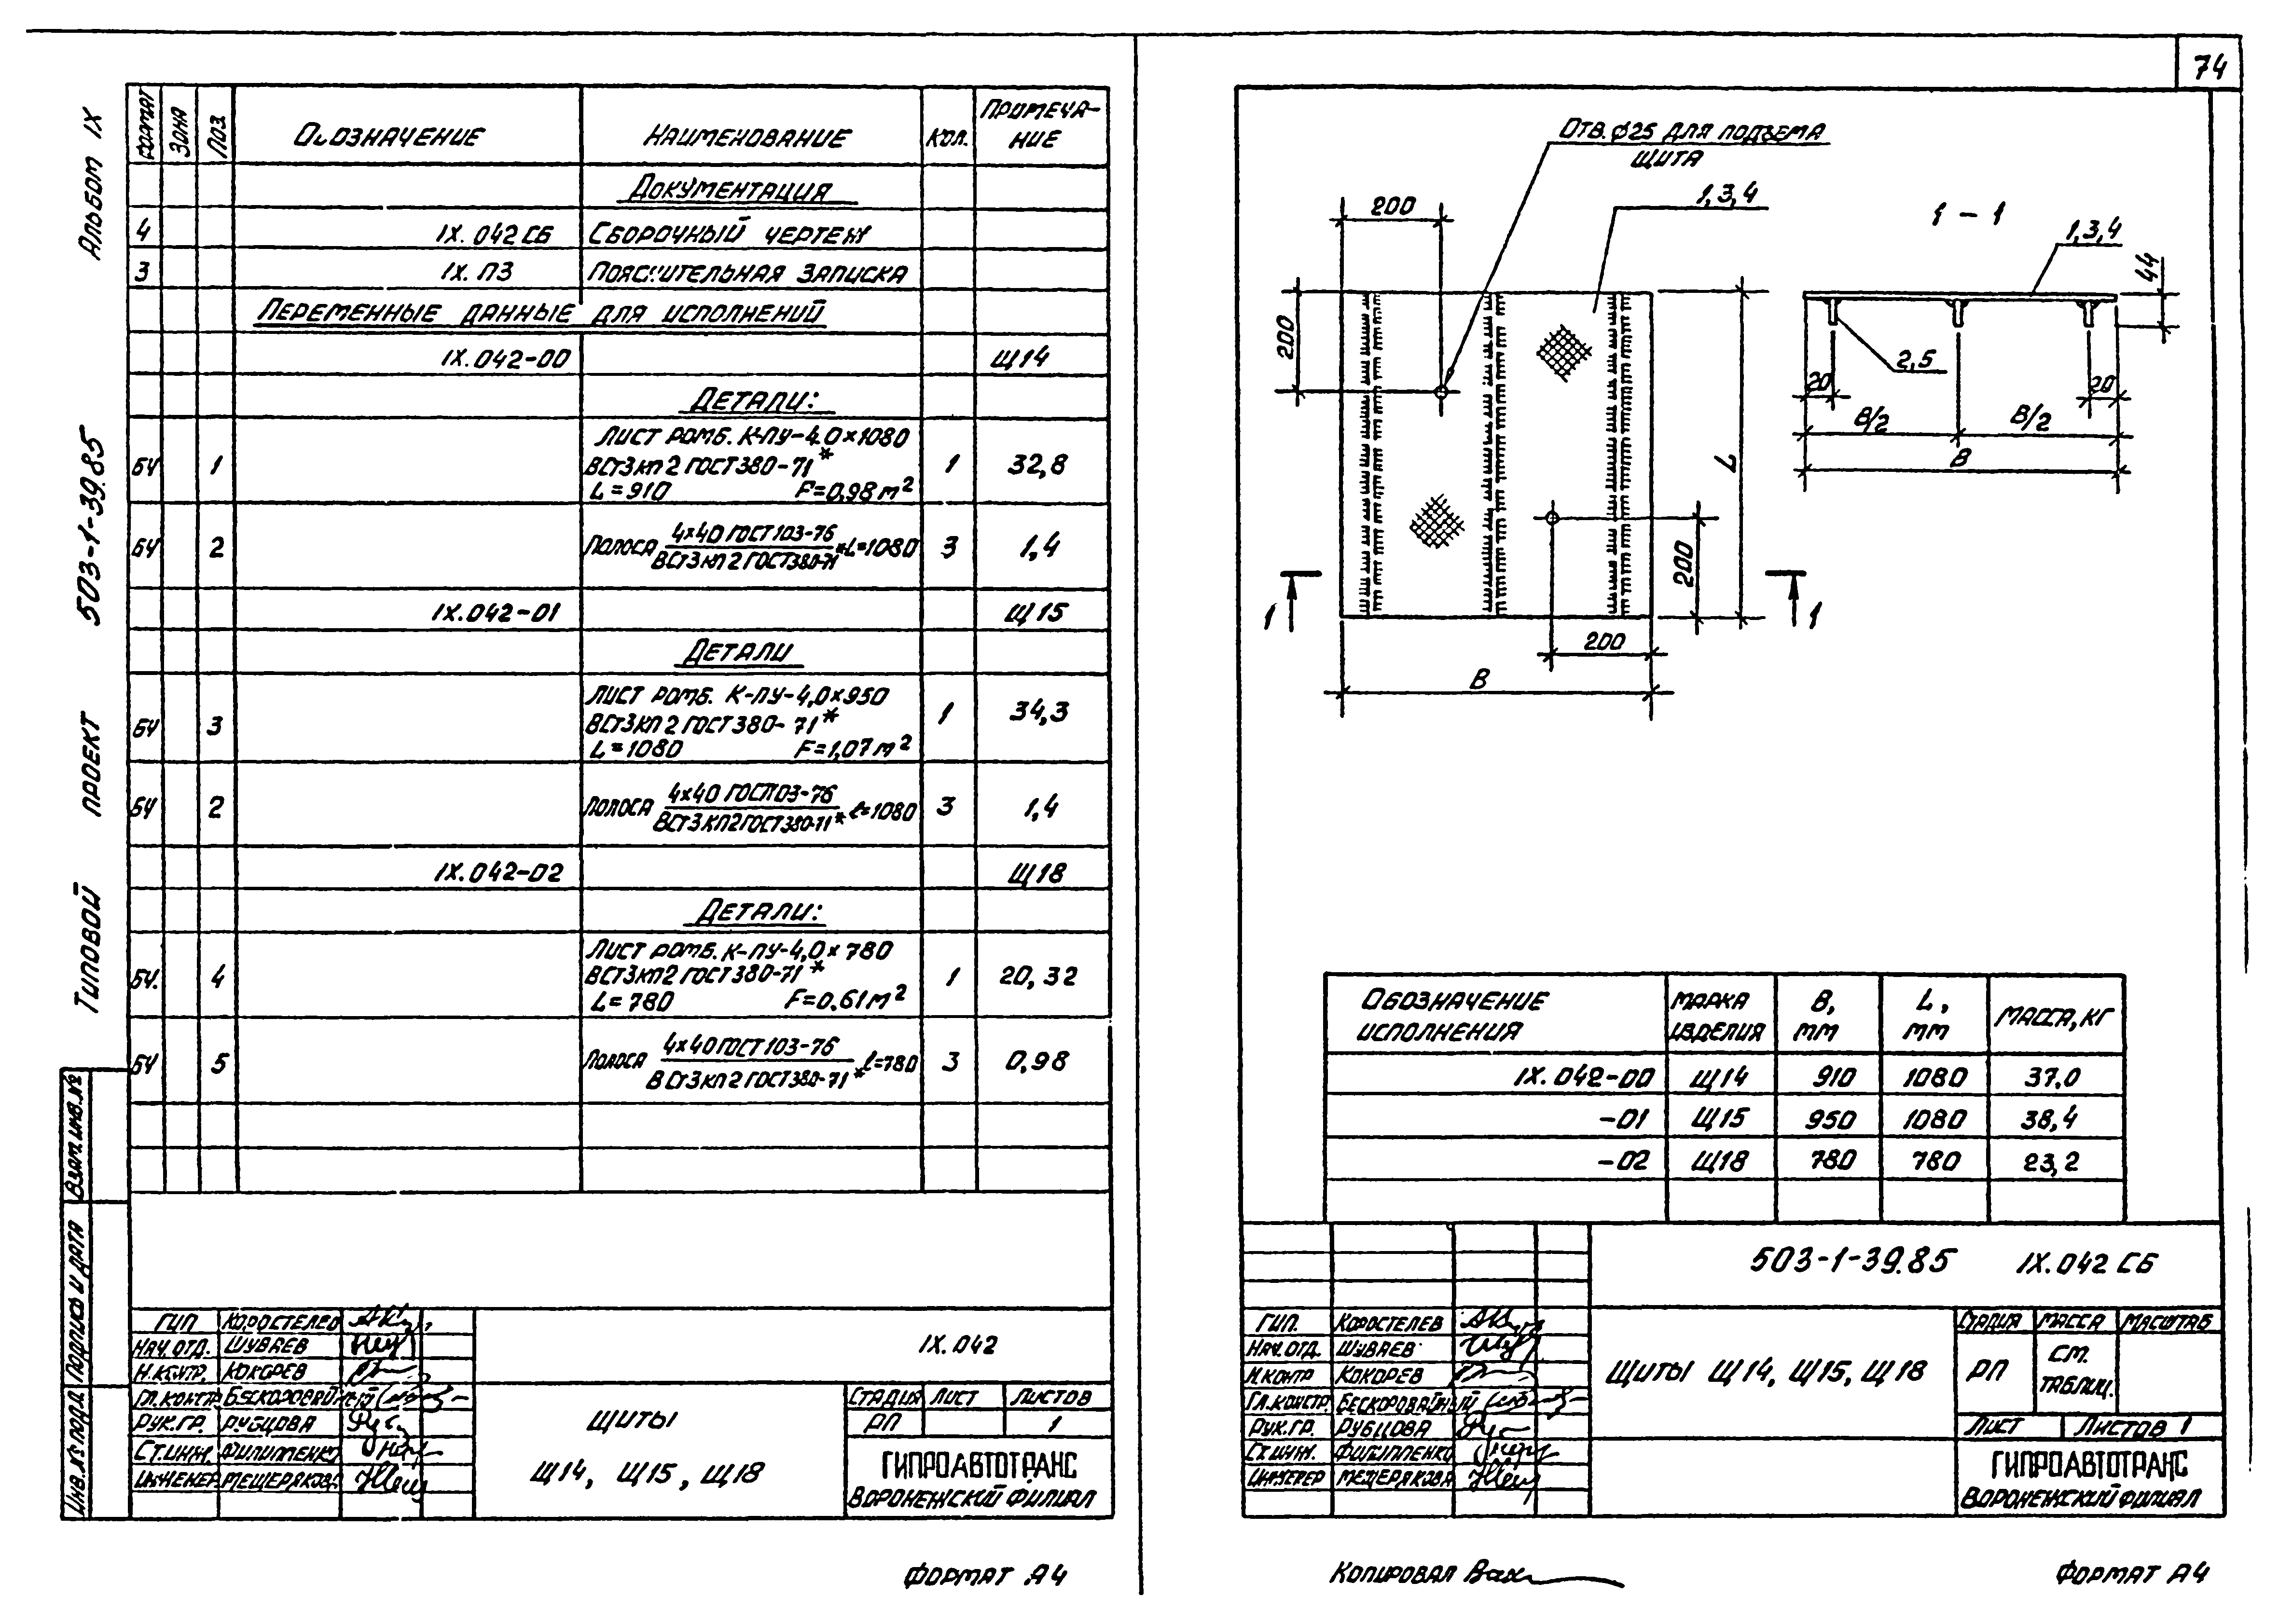 74
Альбом IX
503-1-39.85
Типовой проект
Взам. инв. №
Подпись и дата
Инв. № подл.
Формат Зона Поз. Обозначение Наименование Кол. Примеча-
ние
Документация
4 IX. 042 СБ Сборочный чертеж
3 IX. ПЗ Пояснительная записка
Переменные данные для исполнений
IX. 042-00 Щ14
Детали:
Лист ромб. К-ПУ-4.0×1080
БЧ 1 ВСт3кп2 ГОСТ 380-71* 1 32,8
L=910 F=0,98 м²
4×40 ГОСТ 103-76
БЧ 2 Полоса L=1080 3 1,4
ВСт3кп2 ГОСТ380-71
IX. 042-01 Щ15
Детали
Лист ромб. К-ПУ-4,0×950
БЧ 3 ВСт3кп2 ГОСТ380-71* 1 34,3
L=1080 F=1,07 м²
4×40 ГОСТ103-76
БЧ 2 Полоса ℓ=1080 3 1,4
ВСт3кп2 ГОСТ 380-71*
IX. 042-02 Щ18
Детали:
Лист ромб. К-ПУ-4,0×780
БЧ. 4 ВСт3кп2 ГОСТ 380-71* 1 20,32
L=780 F=0.61 м²
4×40 ГОСТ 103-76
БЧ 5 Полоса ℓ=780 3 0,98
ВСт3кп2 ГОСТ380-71*
ГИП Коростелев
Нач. отд. Шуваев
Н. контр. Кокорев
Гл. констр. Бескоровайный
Рук. гр. Рубцова
Ст. инж. Филипенко
Инженер Мещерякова
IX. 042
Щиты
Щ14, Щ15, Щ18
Стадия Лист Листов
РП 1
ГИПРОАВТОТРАНС
Воронежский филиал
Формат А4
Отв. ϕ25 для подъема
щита
1,3,4
200
200
L
200
200
В
1
1
1 – 1
1,3,4
44
2,5
20
20
В/2
В/2
В
Обозначение
исполнения Марка
изделия В,
мм L,
мм Масса, кг
IX. 042-00 Щ14 910 1080 37,0
-01 Щ15 950 1080 38,4
-02 Щ18 780 780 23,2
503-1-39.85 IX. 042 СБ
ГИП. Коростелев
Нач. отд. Шуваев
Н. контр Кокорев
Гл. констр. Бескоровайный
Рук. гр. Рубцова
Ст. инж. Филиппенко
Инженер Мещерякова
Щиты Щ14, Щ15, Щ18
Стадия Масса Масштаб
РП См.
таблиц.
Лист Листов 1
ГИПРОАВТОТРАНС
Воронежский филиал
Копировал Вах
Формат А4